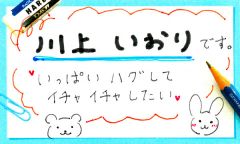 川上 いおり です。
いっぱいハグして
イチャイチャしたい。